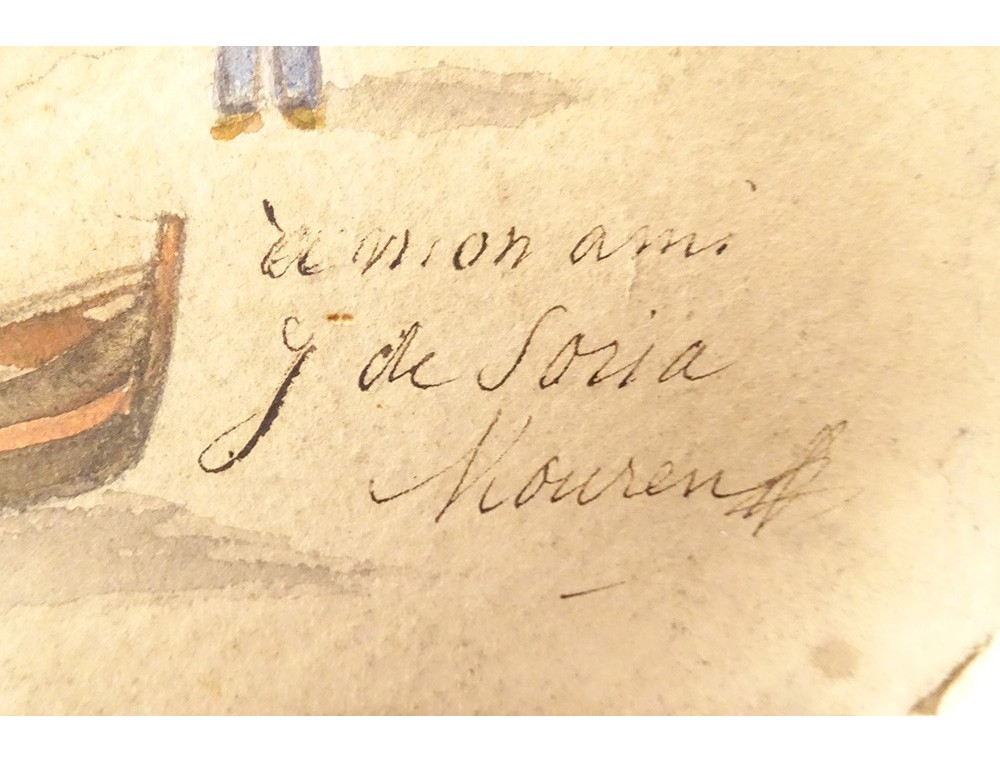 à mon ami
J de Soria
Mouren